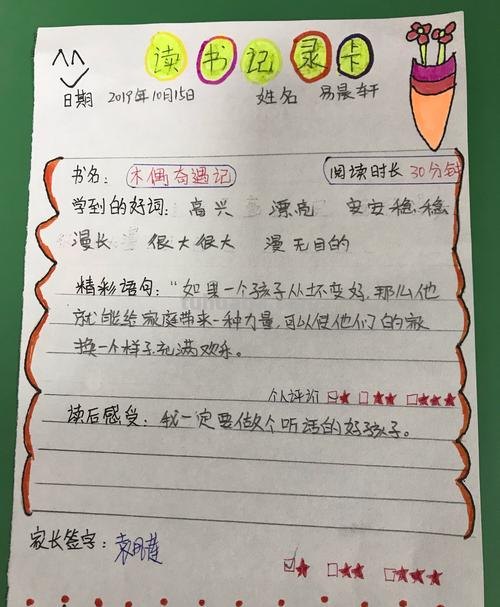 读书记录卡
日期 2019年10月15日 姓名 易晨轩
书名: 木偶奇遇记 阅读时长 30分钟
学到的好词: 高兴 漂亮 安安稳稳
漫长 很大很大 漫无目的
精彩语句: “如果一个孩子从坏变好,那么他
就能给家庭带来一种力量,可以使他们的家
换一个样子,充满欢乐。
个人评价 □★ □★★ □★★★
读后感受: 我一定要做个听话的好孩子。
家长签字:
□★ □★★ □★★★